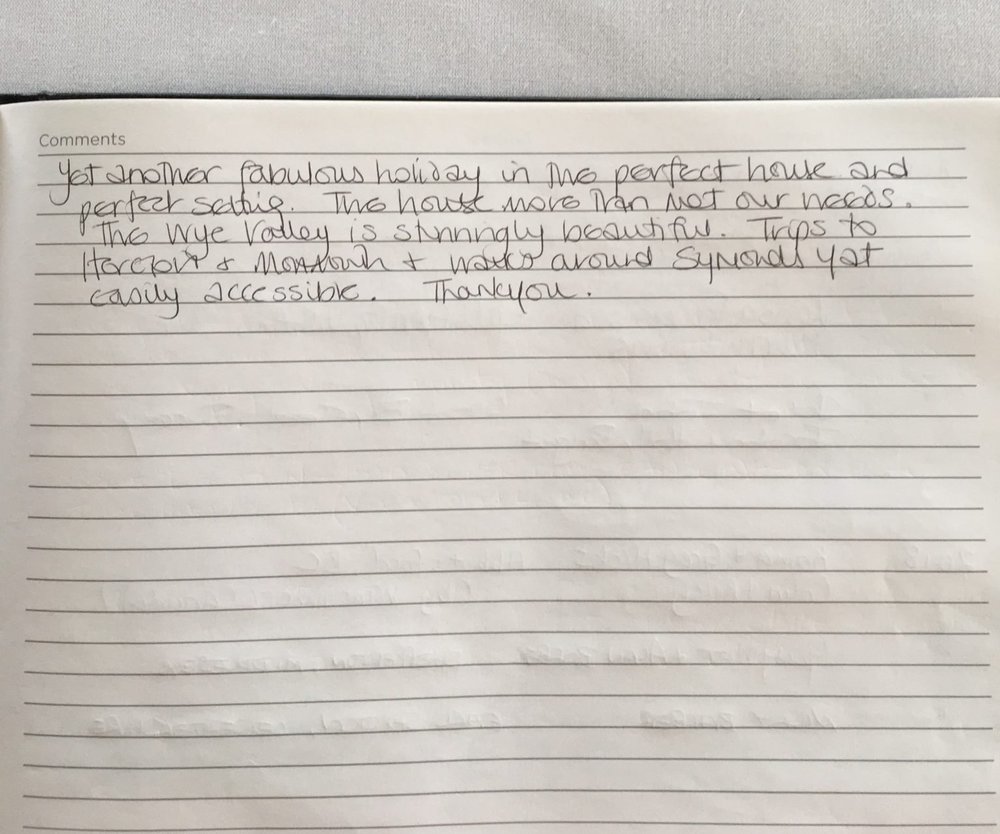 Comments
Yet another fabulous holiday in the perfect house and
perfect setting. The house more than met our needs.
The Wye Valley is stunningly beautiful. Trips to
Hereford + Monmouth + walks around Symonds Yat
easily accessible. Thankyou.